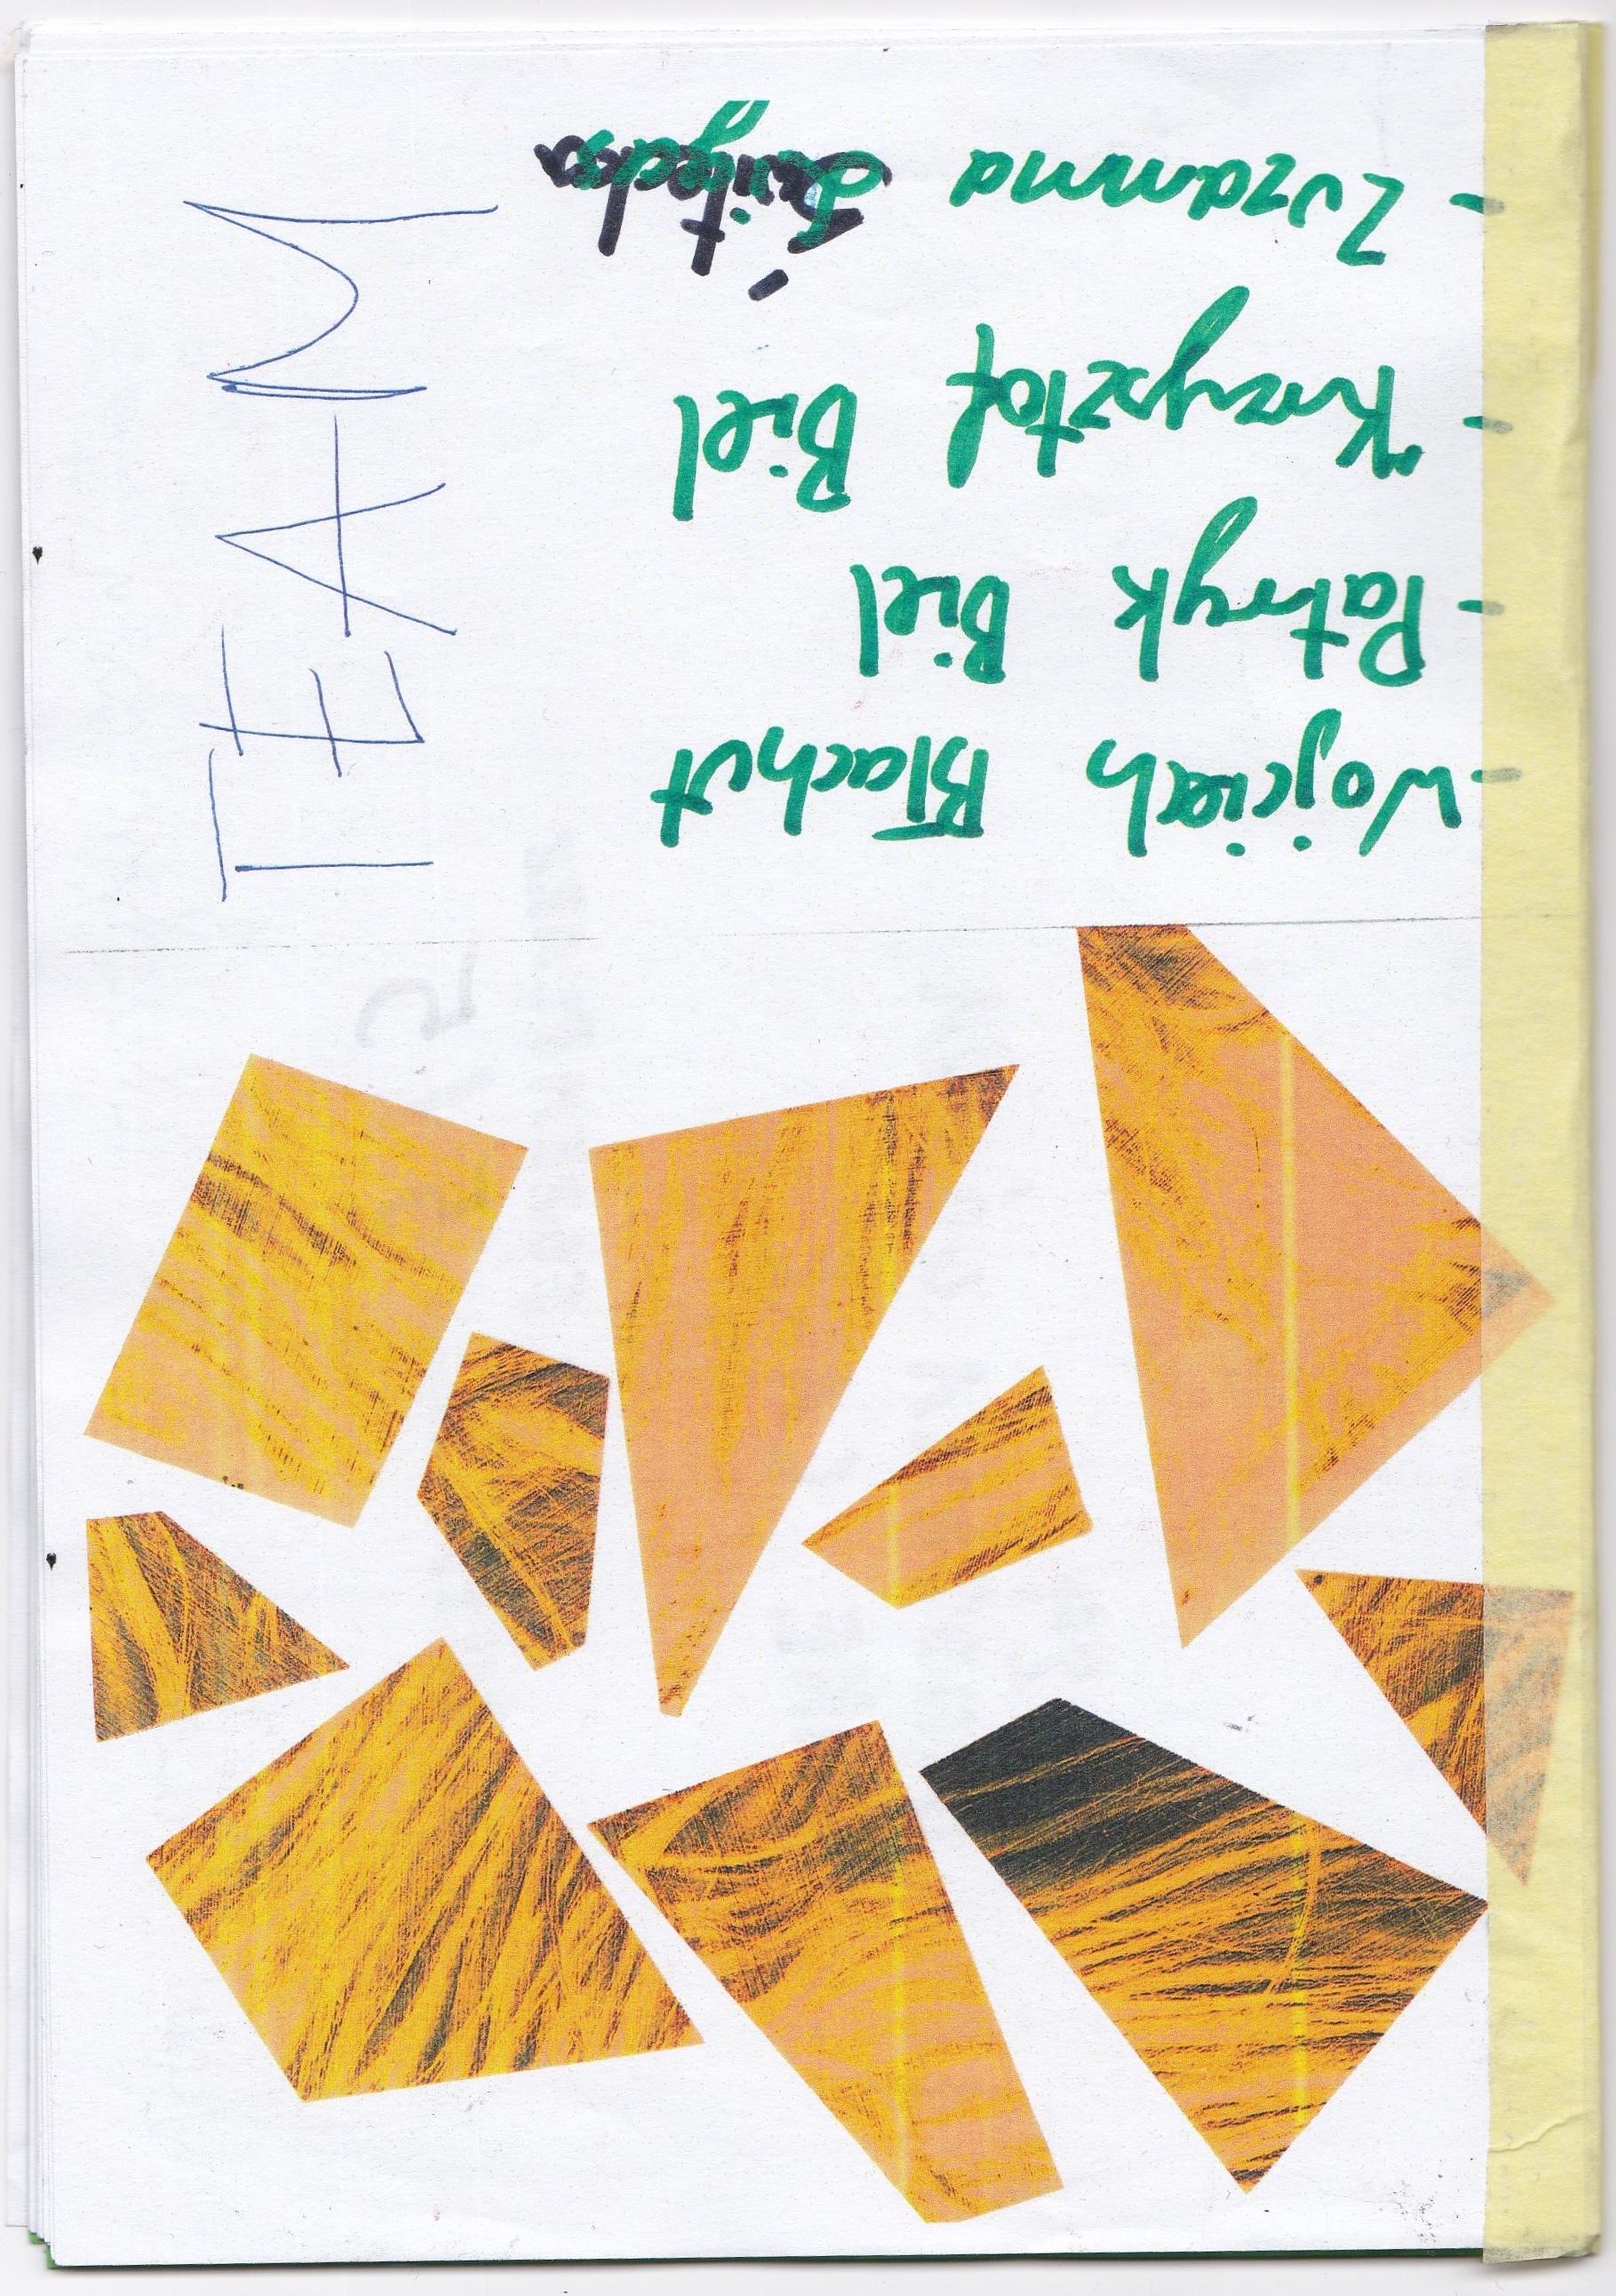 TEAM
-Wojciech Błachut
- Patryk Biel
- Krzysztof Biel
- Zuzanna